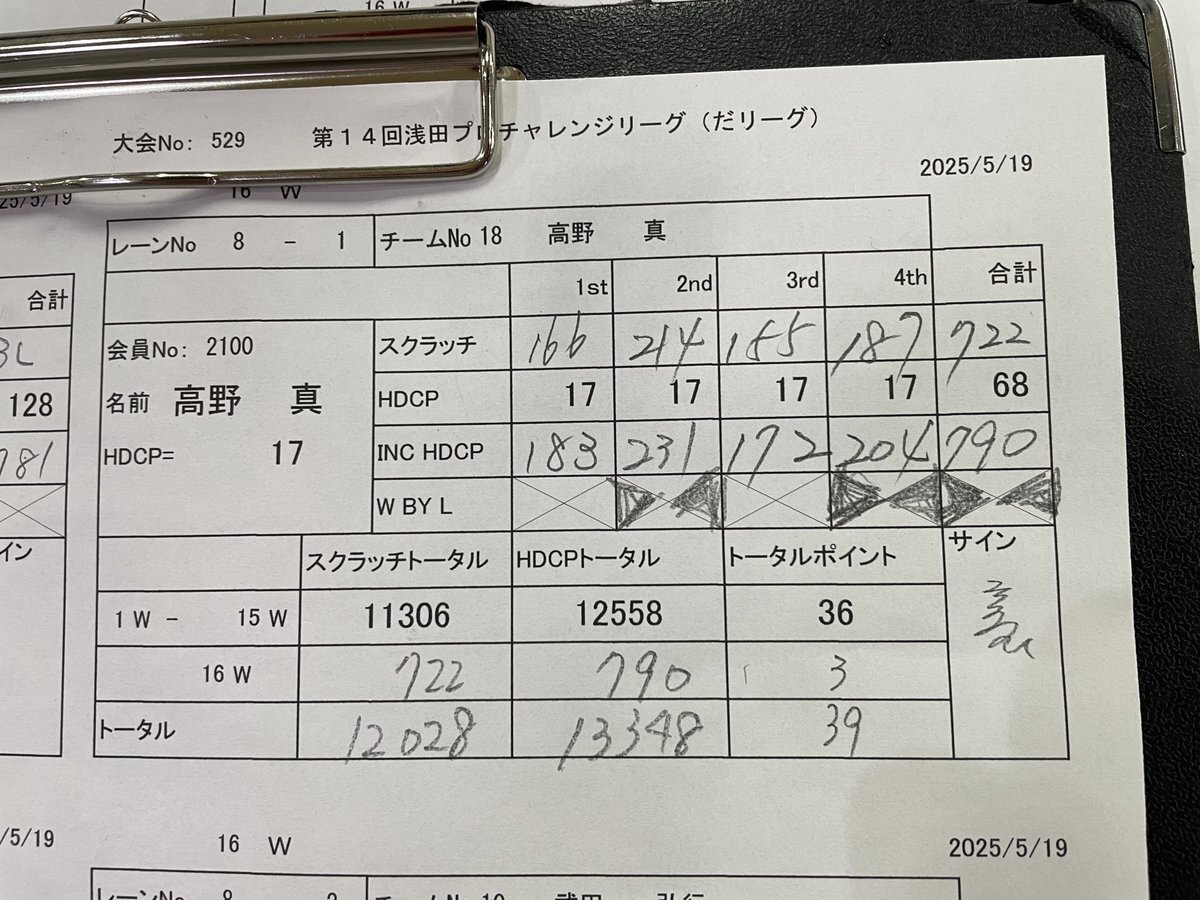 16 W
大会No: 529 第14回浅田プロチャレンジリーグ(だリーグ)
2025/5/19
16 W
レーンNo 8 - 1 チームNo 18 高野 真
1st 2nd 3rd 4th 合計
会員No: 2100
名前 高野 真
HDCP= 17
スクラッチ 166 214 155 187 722
HDCP 17 17 17 17 68
INC HDCP 183 231 172 204 790
W BY L
スクラッチトータル HDCPトータル トータルポイント サイン
1 W - 15 W 11306 12558 36
16 W 722 790 3
トータル 12028 13348 39
合計
128
781
イン
/5/19
16 W
2025/5/19
レーンNo 8